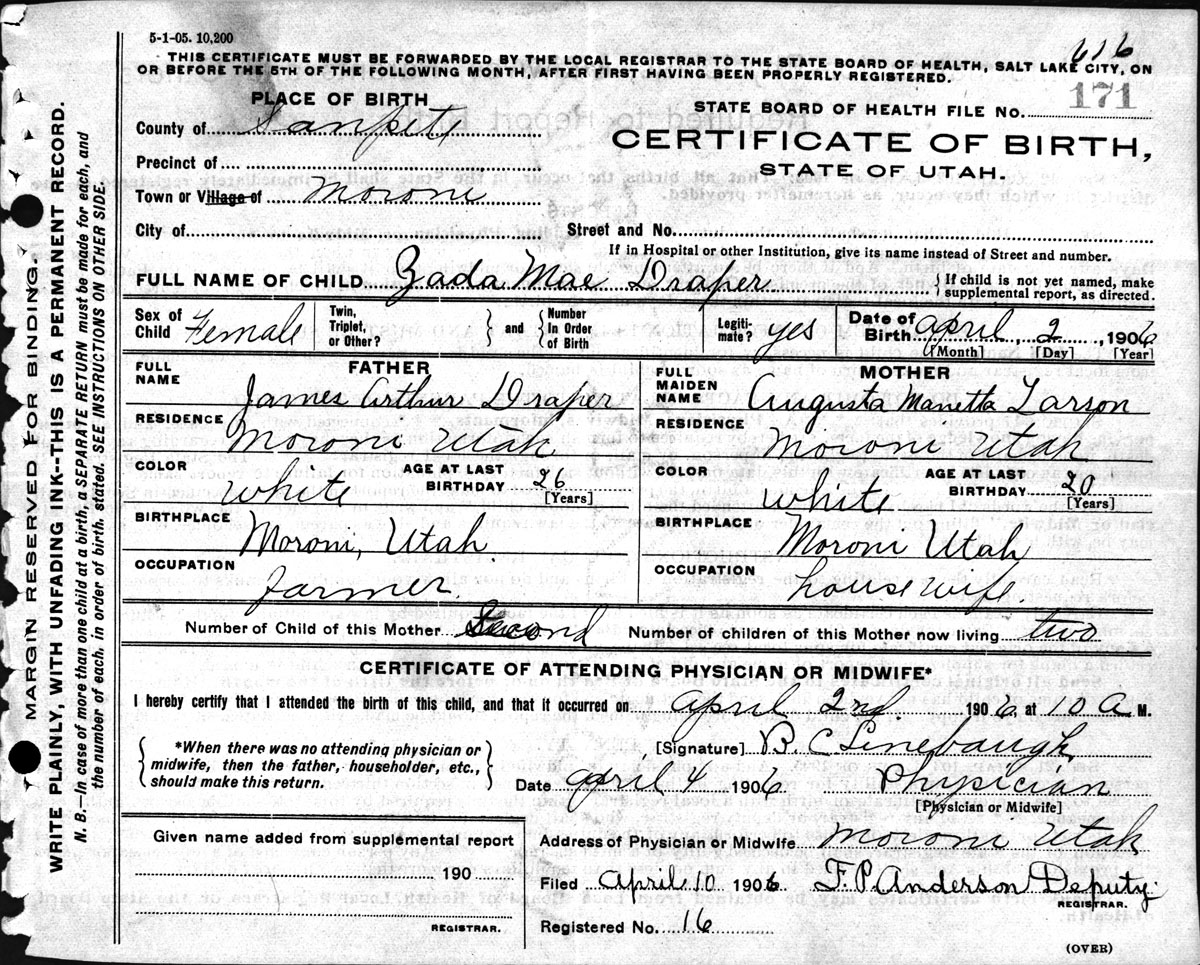 5-1-05. 10,200
THIS CERTIFICATE MUST BE FORWARDED BY THE LOCAL REGISTRAR TO THE STATE BOARD OF HEALTH, SALT LAKE CITY, ON
OR BEFORE THE 5TH OF THE FOLLOWING MONTH, AFTER FIRST HAVING BEEN PROPERLY REGISTERED.
616
171
PLACE OF BIRTH
STATE BOARD OF HEALTH FILE NO.
County of Sanpete
CERTIFICATE OF BIRTH,
STATE OF UTAH.
Precinct of
Town or Village of Moroni
City of
Street and No.
If in Hospital or other Institution, give its name instead of Street and number.
FULL NAME OF CHILD Zada Mae Draper { If child is not yet named, make
supplemental report, as directed.
Sex of
Child Female
Twin,
Triplet,
or Other?
and
Number
In Order
of Birth
Legiti-
mate? yes
Date of
Birth April 2, 1906
[Month] [Day] [Year]
FATHER
FULL
NAME James Arthur Draper
RESIDENCE Moroni Utah
COLOR White
AGE AT LAST
BIRTHDAY 26
[Years]
BIRTHPLACE Moroni, Utah
OCCUPATION Farmer.
MOTHER
FULL
MAIDEN
NAME Augusta Manetta Larson
RESIDENCE Moroni Utah
COLOR White
AGE AT LAST
BIRTHDAY 20
[Years]
BIRTHPLACE Moroni Utah
OCCUPATION housewife.
Number of Child of this Mother Second Number of children of this Mother now living two
CERTIFICATE OF ATTENDING PHYSICIAN OR MIDWIFE*
I hereby certify that I attended the birth of this child, and that it occurred on April 2nd. 1906, at 10 A M.
*When there was no attending physician or
midwife, then the father, householder, etc.,
should make this return.
[Signature] B. C Linebaugh
Date April 4 1906 Physician
[Physician or Midwife]
Given name added from supplemental report
190
REGISTRAR.
Address of Physician or Midwife Moroni Utah
Filed April 10 1906 F. P. Anderson Deputy
REGISTRAR.
Registered No. 16
(OVER)
MARGIN RESERVED FOR BINDING.
WRITE PLAINLY, WITH UNFADING INK---THIS IS A PERMANENT RECORD.
N. B.—In case of more than one child at a birth, a SEPARATE RETURN must be made for each, and
the number of each, in order of birth, stated. SEE INSTRUCTIONS ON OTHER SIDE.